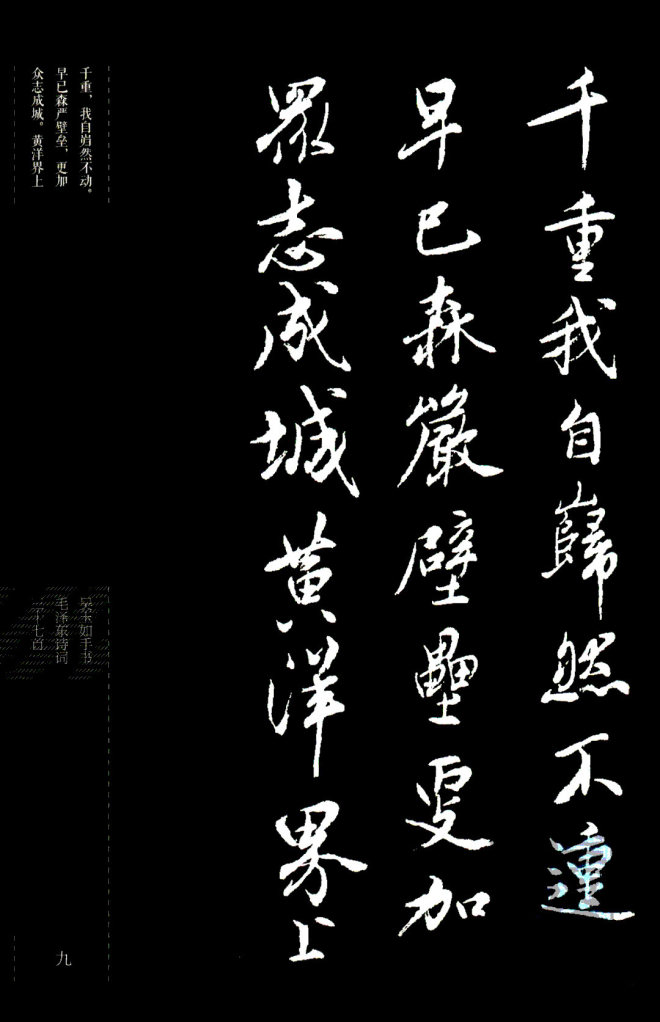 千重我自巋然不
早已森嚴壁壘更加
眾志成城黃洋界上
千重，我自岿然不动。
早已森严壁垒，更加
众志成城。黄洋界上
吴玉如手书
毛泽东诗词
十七首
九